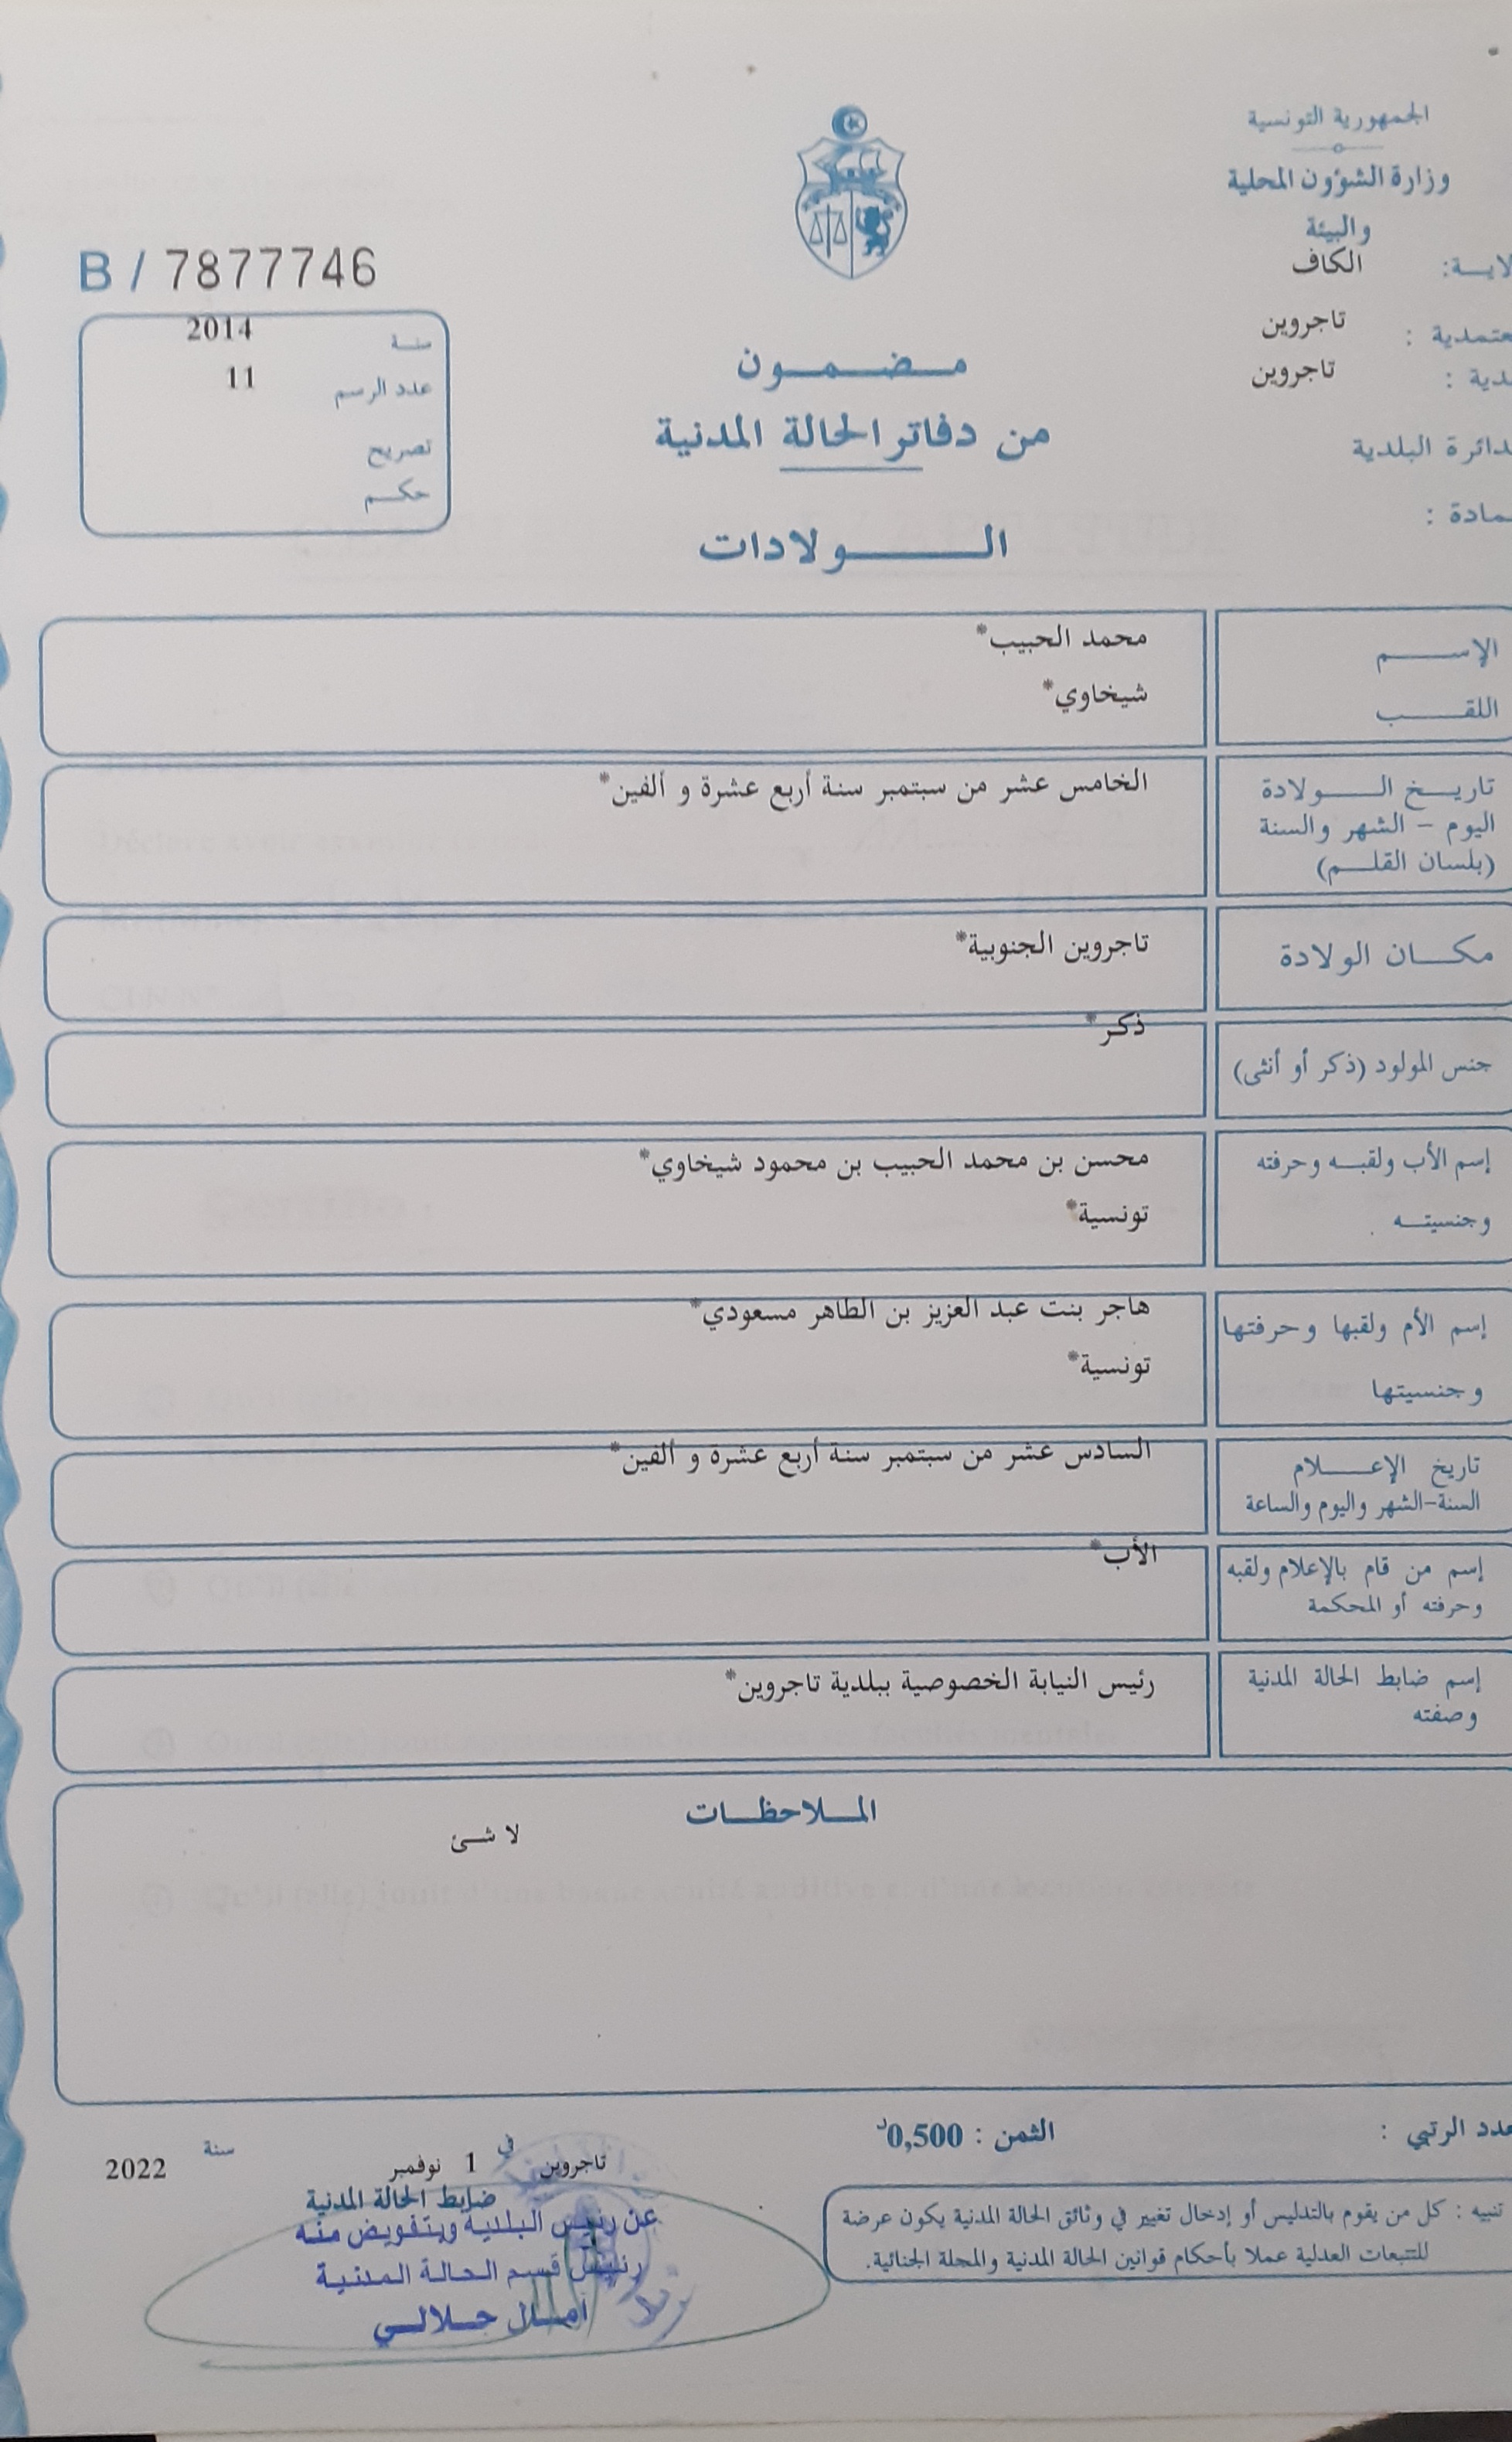 الجمهورية التونسية
وزارة الشؤون المحلية
والبيئة
لايـة: الكاف
عتمدية : تاجروين
دية : تاجروين
دائرة البلدية
مادة :
B / 7877746
سنة 2014
عدد الرسم 11
تصريح
حكم
مضمون
من دفاتر الحالة المدنية
الولادات
الإسم محمد الحبيب*
اللقب شيخاوي*
تاريخ الولادة الخامس عشر من سبتمبر سنة أربع عشرة و ألفين*
اليوم - الشهر والسنة
(بلسان القلم)
مكان الولادة تاجروين الجنوبية*
جنس المولود (ذكر أو أنثى) ذكر*
إسم الأب ولقبه وحرفته محسن بن محمد الحبيب بن محمود شيخاوي*
وجنسيته تونسية*
إسم الأم ولقبها وحرفتها هاجر بنت عبد العزيز بن الطاهر مسعودي*
وجنسيتها تونسية*
تاريخ الإعلام السادس عشر من سبتمبر سنة أربع عشرة و ألفين*
السنة-الشهر واليوم والساعة
إسم من قام بالإعلام ولقبه الأب*
وحرفته أو المحكمة
إسم ضابط الحالة المدنية رئيس النيابة الخصوصية ببلدية تاجروين*
وصفته
الملاحظات
لا شئ
عدد الرتبي :
الثمن : 0,500د
تاجروين في 1 نوفمبر سنة 2022
ضابط الحالة المدنية
عن رئيس البلدية وبتفويض منه
رئيس قسم الحالة المدنية
أمال جلالي
تنبيه : كل من يقوم بالتدليس أو إدخال تغيير في وثائق الحالة المدنية يكون عرضة
للتتبعات العدلية عملا بأحكام قوانين الحالة المدنية والمجلة الجنائية.